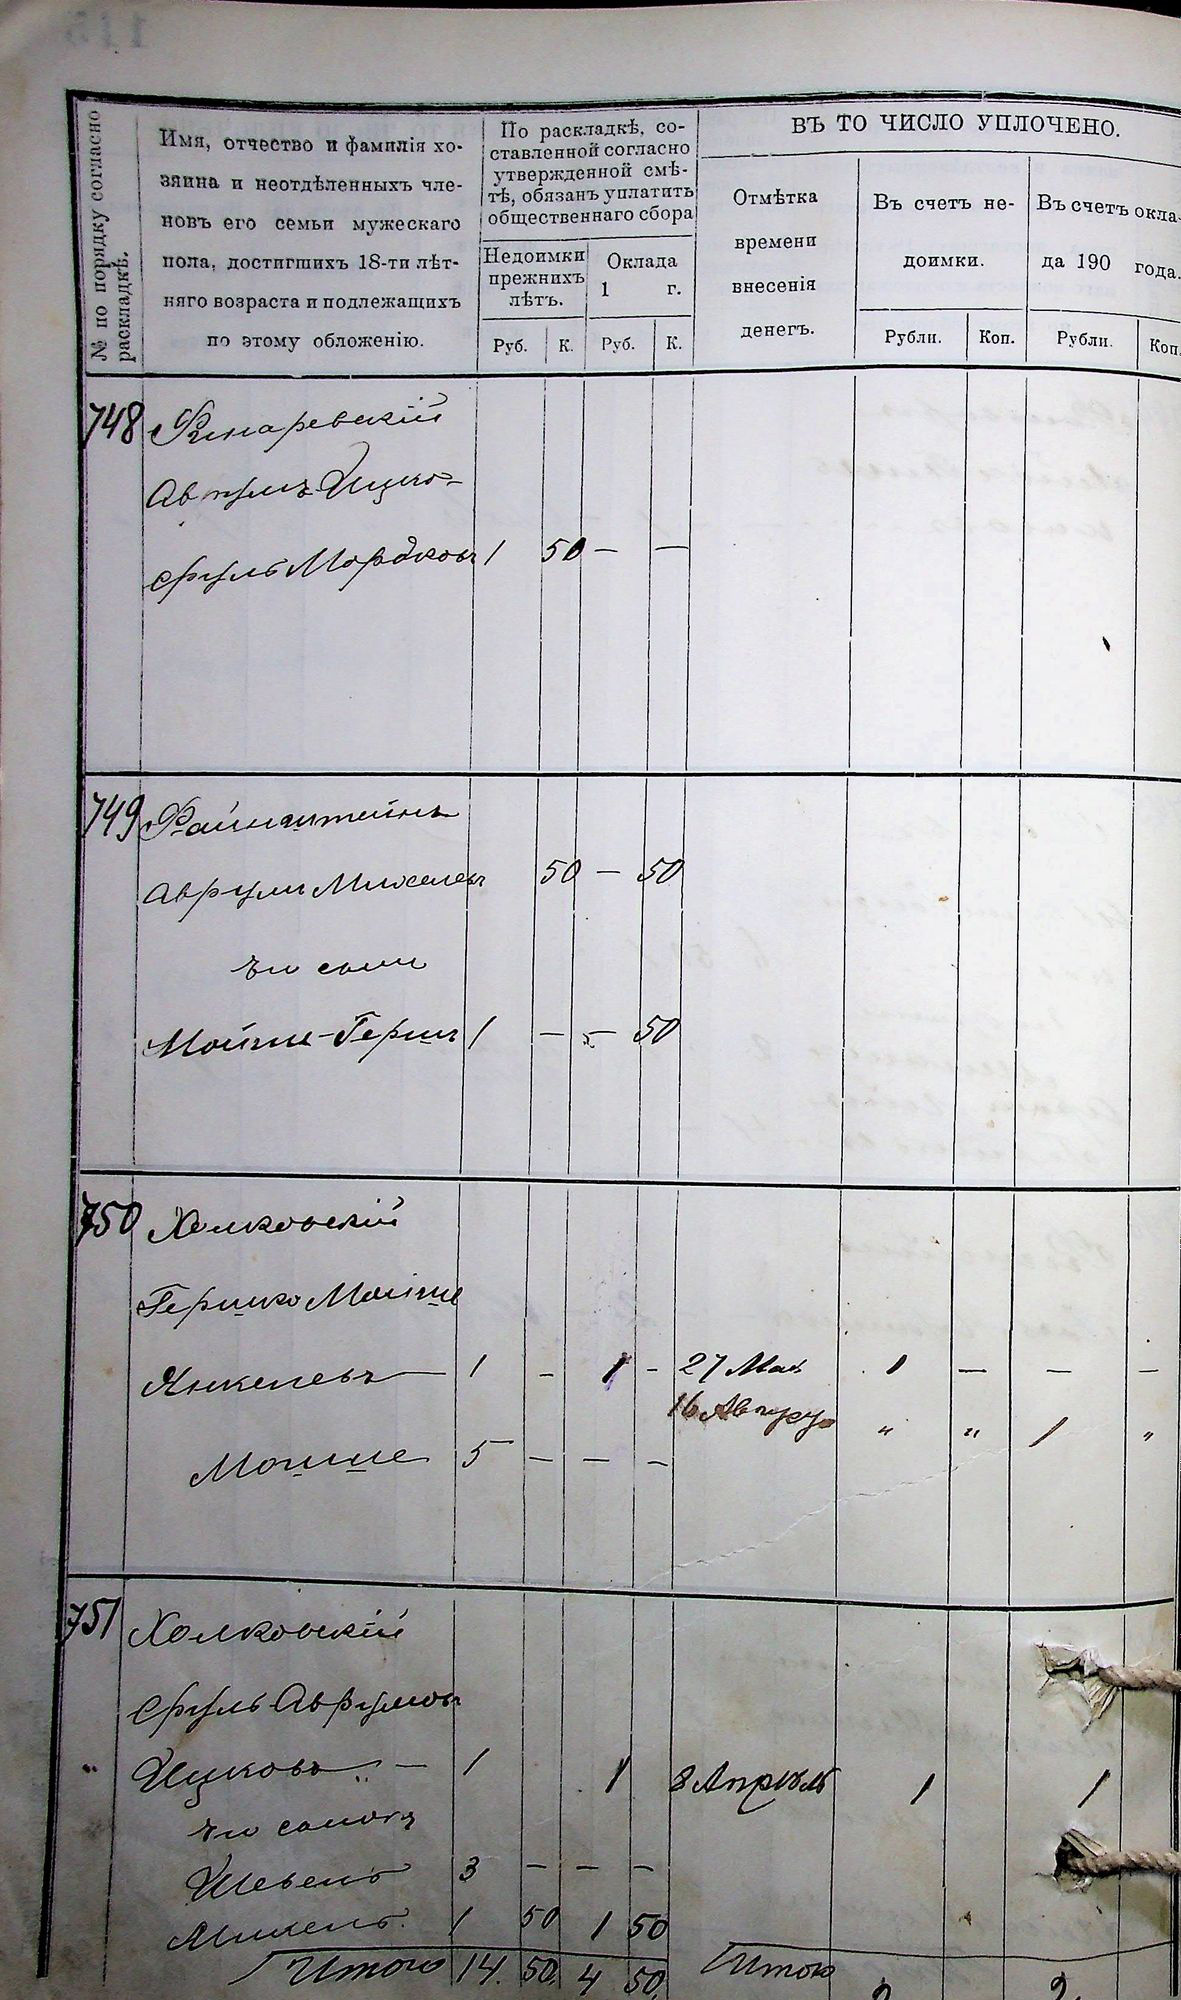 № по порядку согласно
раскладкѣ.
Имя, отчество и фамилія хо-
зяина и неотдѣленныхъ чле-
новъ его семьи мужескаго
пола, достигшихъ 18-ти лѣт-
няго возраста и подлежащихъ
по этому обложенію.
По раскладкѣ, со-
ставленной согласно
утвержденной смѣ-
тѣ, обязанъ уплатить
общественнаго сбора
Недоимки
прежнихъ
лѣтъ.
Оклада
1 г.
Руб. К. Руб. К.
ВЪ ТО ЧИСЛО УПЛОЧЕНО.
Отмѣтка
времени
внесенія
денегъ.
Въ счетъ не-
доимки.
Рубли. Коп.
Въ счетъ окла-
да 190 года.
Рубли. Коп.
748
Аврумъ Ицко-
Сруль Мордковъ 1 50 — —
749 Файнштейнъ
Аврумъ 50 — 50
его сынъ
Мойше-Гершъ 1 — — 50
750 Холковскій
Гершко Мойше
Янкелевъ — 1 — 1 — 27 Мая 1 — — —
16 Августа „ „ 1 „
Мойше 5 — — —
751 Холковскій
Сруль Аврумовъ
Ицковъ — 1 1 8 Апрѣль 1 1
его сыновья
3 — — —
1 50 1 50
Итого 14. 50. 4 50. Итого 2 2.